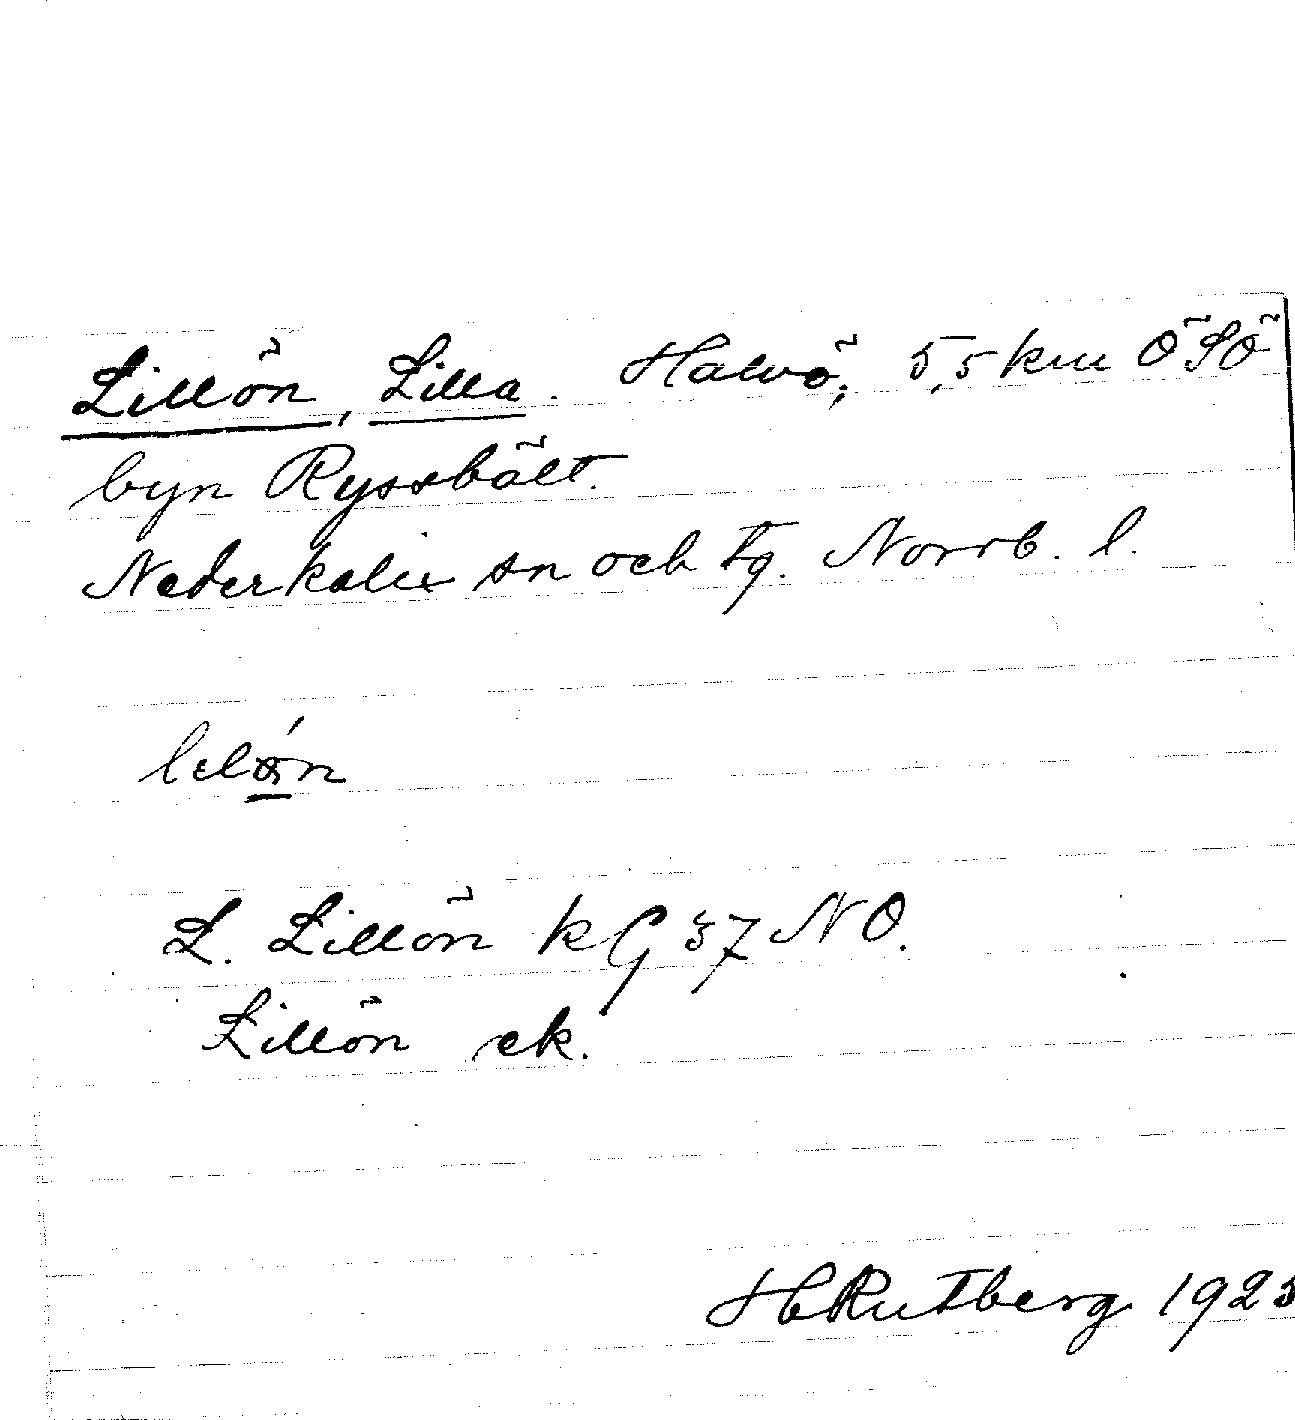 Lillön, Lilla. Halvö, 5,5 km ÖSÖ
byn Ryssbält.
Nederkalix sn och tg. Norrb. l.
L. Lillön kG 37 NO.
Lillön ek.
H Rutberg 1923